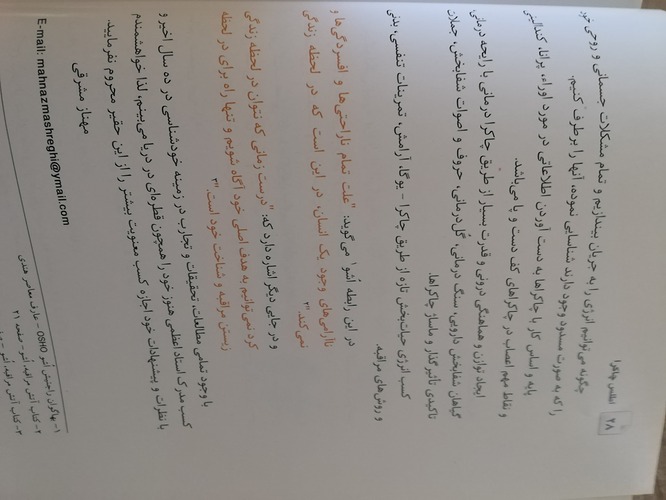 ۲۸ اطلس چاکرا
چگونه می‌توانیم انرژی را به جریان بیندازیم و تمام مشکلات جسمانی و روحی خود
را که به صورت مسدود وجود دارند شناسایی نموده، آنها را برطرف کنیم.
پایه و اساس کار با چاکراها به دست آوردن اطلاعاتی در مورد اوراء، پرانا، کندالینی
و نقاط مهم اعصاب در چاکراهای کف دست و پا می‌باشد.
ایجاد توازن و هماهنگی درونی و قدرت بسیار از طریق چاکرا درمانی با رایحه درمانی،
گیاهان شفابخش دارویی، سنگ درمانی، گل‌درمانی، حروف و اصوات شفابخش، جملات
تاکیدی تأثیرگذار و ماساژ چاکراها.
کسب انرژی حیات‌بخش تازه از طریق چاکرا - یوگا، آرامش، تمرینات تنفسی، بدنی
و روش‌های مراقبه.
در این رابطه اُشو۱ می‌گوید: "علت تمام ناراحتی‌ها و افسردگی‌ها و
ناآرامی‌های وجود یک انسان، در این است که در لحظه زندگی
نمی‌کند."۲
و در جایی دیگر اشاره دارد که: "درست زمانی که نتوان در لحظه زندگی
کرد نمی‌توانیم به هدف اصلی خود آگاه شویم و تنها راه برای در لحظه
زیستن مراقبه و شناخت خود است."۳
با وجود تمامی مطالعات، تحقیقات و تجارب در زمینه خودشناسی در ده سال اخیر و
کسب مدرک استاد اعظمی هنوز خود را همچون قطره‌ای در دریا می‌بینم، لذا خواهشمندم
با نظرات و پیشنهادات خود اجازه کسب معنویت بیشتر را از این حقیر محروم نفرمایید.
مهناز مشرقی
E-mail: mahnazmashreghi@ymail.com
۱- بهاگوان راجنیش اُشو OSHO - عارف معاصر هندی
۲- کتاب آتش مراقبه، اُشو - صفحه ۲۱
۳- کتاب آتش مراقبه، اُشو